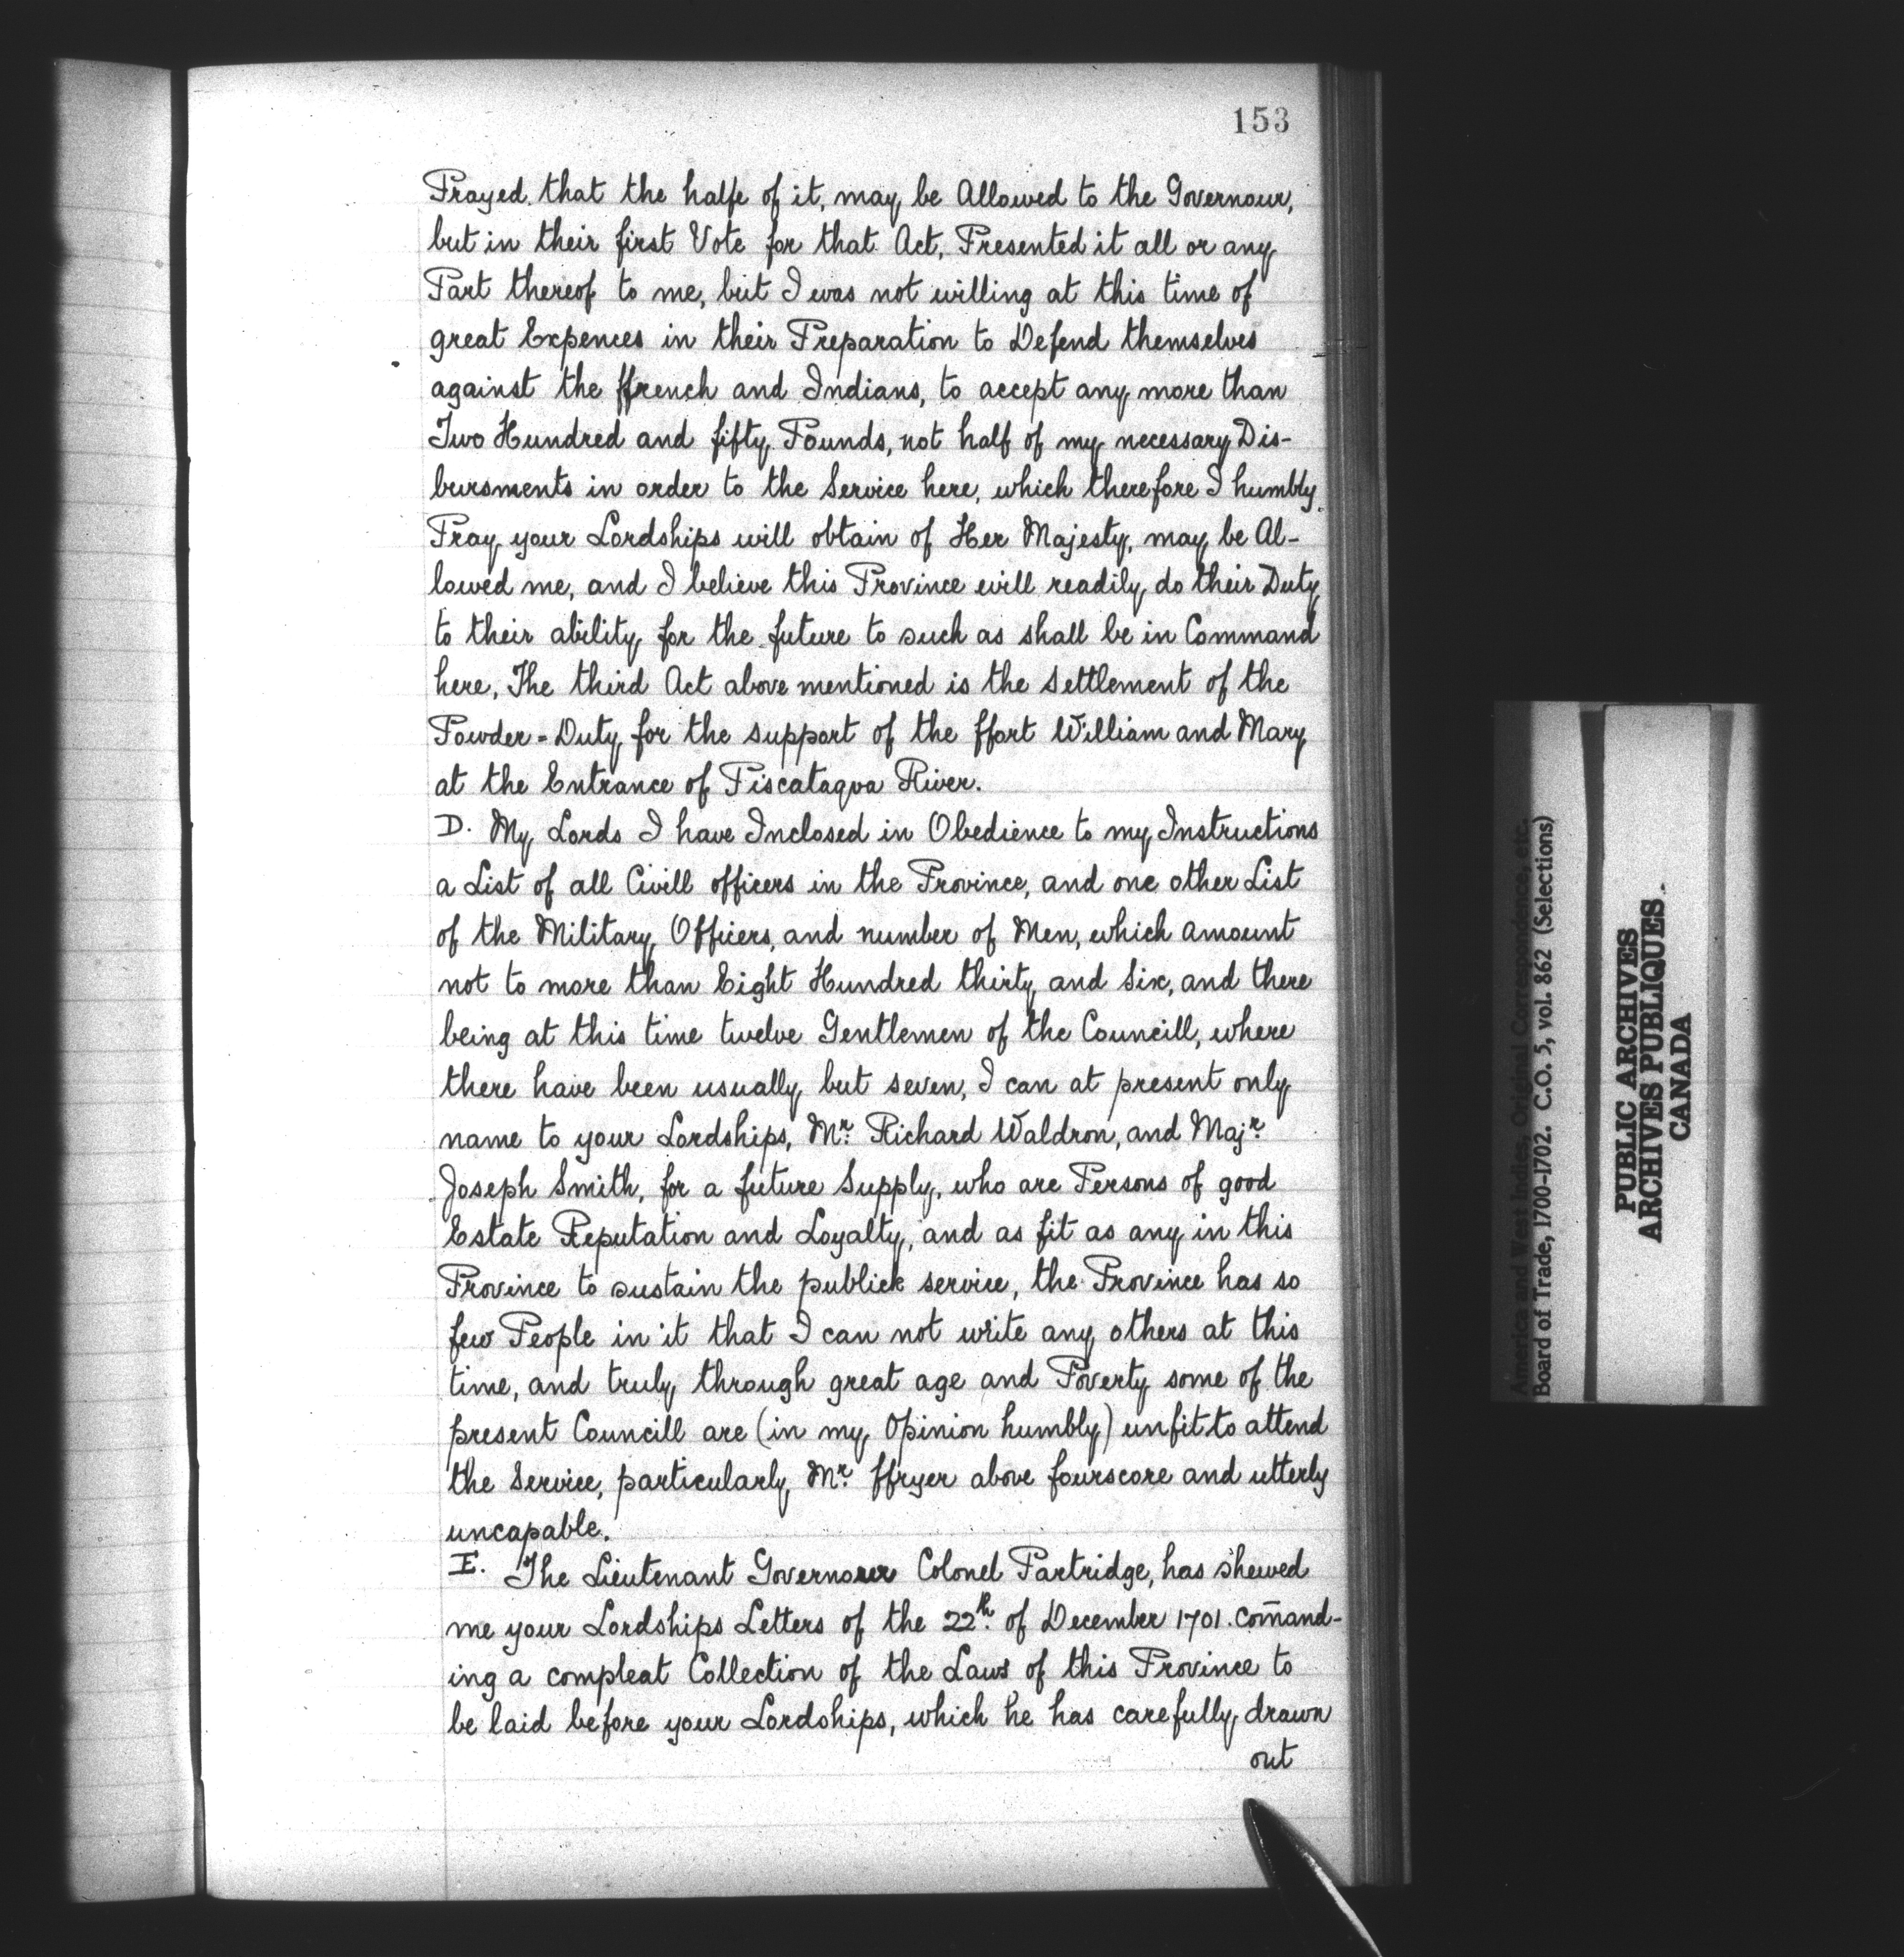 153
Prayed, that the halfe of it, may be Allowed to the Governour,
but in their first Vote for that Act, Presented it all or any
Part thereof to me, but I was not willing at this time of
great Expences in their Preparation to Defend themselves
against the ffrench and Indians, to accept any more than
Two Hundred and fifty Pounds, not half of my necessary Dis-
bursments in order to the Service here, which therefore I humbly
Pray your Lordships will obtain of Her Majesty, may be Al-
lowed me, and I believe this Province will readily do their Duty
to their ability for the future to such as shall be in Command
here, The third Act above mentioned is the Settlement of the
Powder=Duty for the support of the ffort William and Mary
at the Entrance of Piscataqva River.
D. My Lords I have Inclosed in Obedience to my Instructions
a List of all Civill officers in the Province, and one other List
of the Military Officers, and number of Men, which amount
not to more than Eight Hundred thirty and Six, and there
being at this time twelve Gentlemen of the Councill, where
there have been usually but seven, I can at present only
name to your Lordships, Mr. Richard Waldron, and Majr.
Joseph Smith, for a future Supply, who are Persons of good
Estate Reputation and Loyalty, and as fit as any in this
Province to sustain the publick service, the Province has so
few People in it that I can not write any others at this
time, and truly through great age and Poverty some of the
present Councill are (in my Opinion humbly) unfit to attend
the Service, particularly Mr. ffryer above fourscore and utterly
uncapable.
E. The Lieutenant Governour Colonel Partridge, has shewed
me your Lordships Letters of the 22th. of December 1701. com̄and-
ing a compleat Collection of the Laws of this Province to
be laid before your Lordships, which he has carefully drawn
out
America and West Indies, Original Correspondence, etc.
Board of Trade, 1700-1702. C.O. 5, vol. 862 (Selections)
PUBLIC ARCHIVES
ARCHIVES PUBLIQUES
CANADA